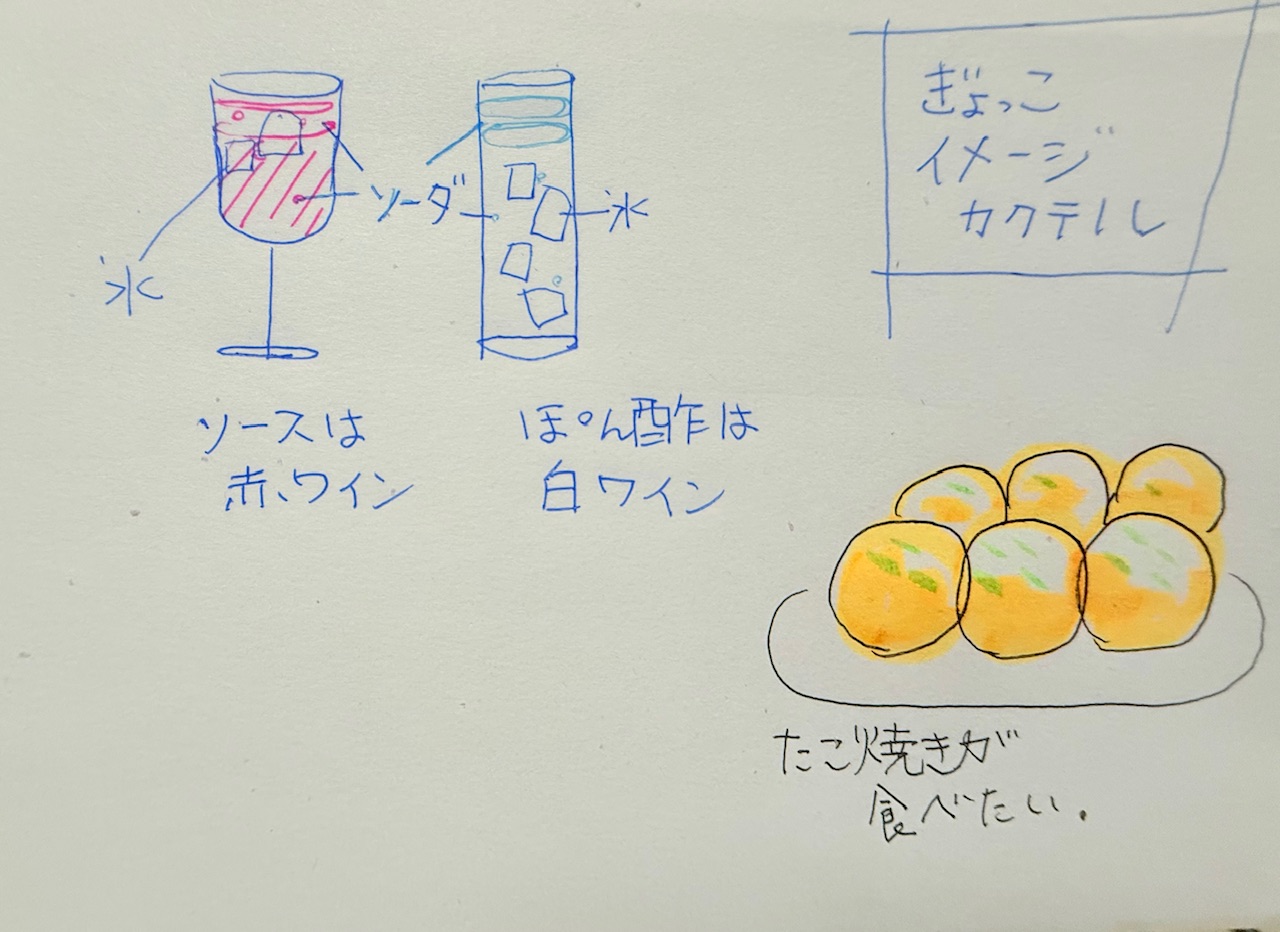 ぎょっこ
イメージ
カクテル
ソーダ
氷
氷
ソースは
赤ワイン
ぽん酢は
白ワイン
たこ焼きが
食べたい.